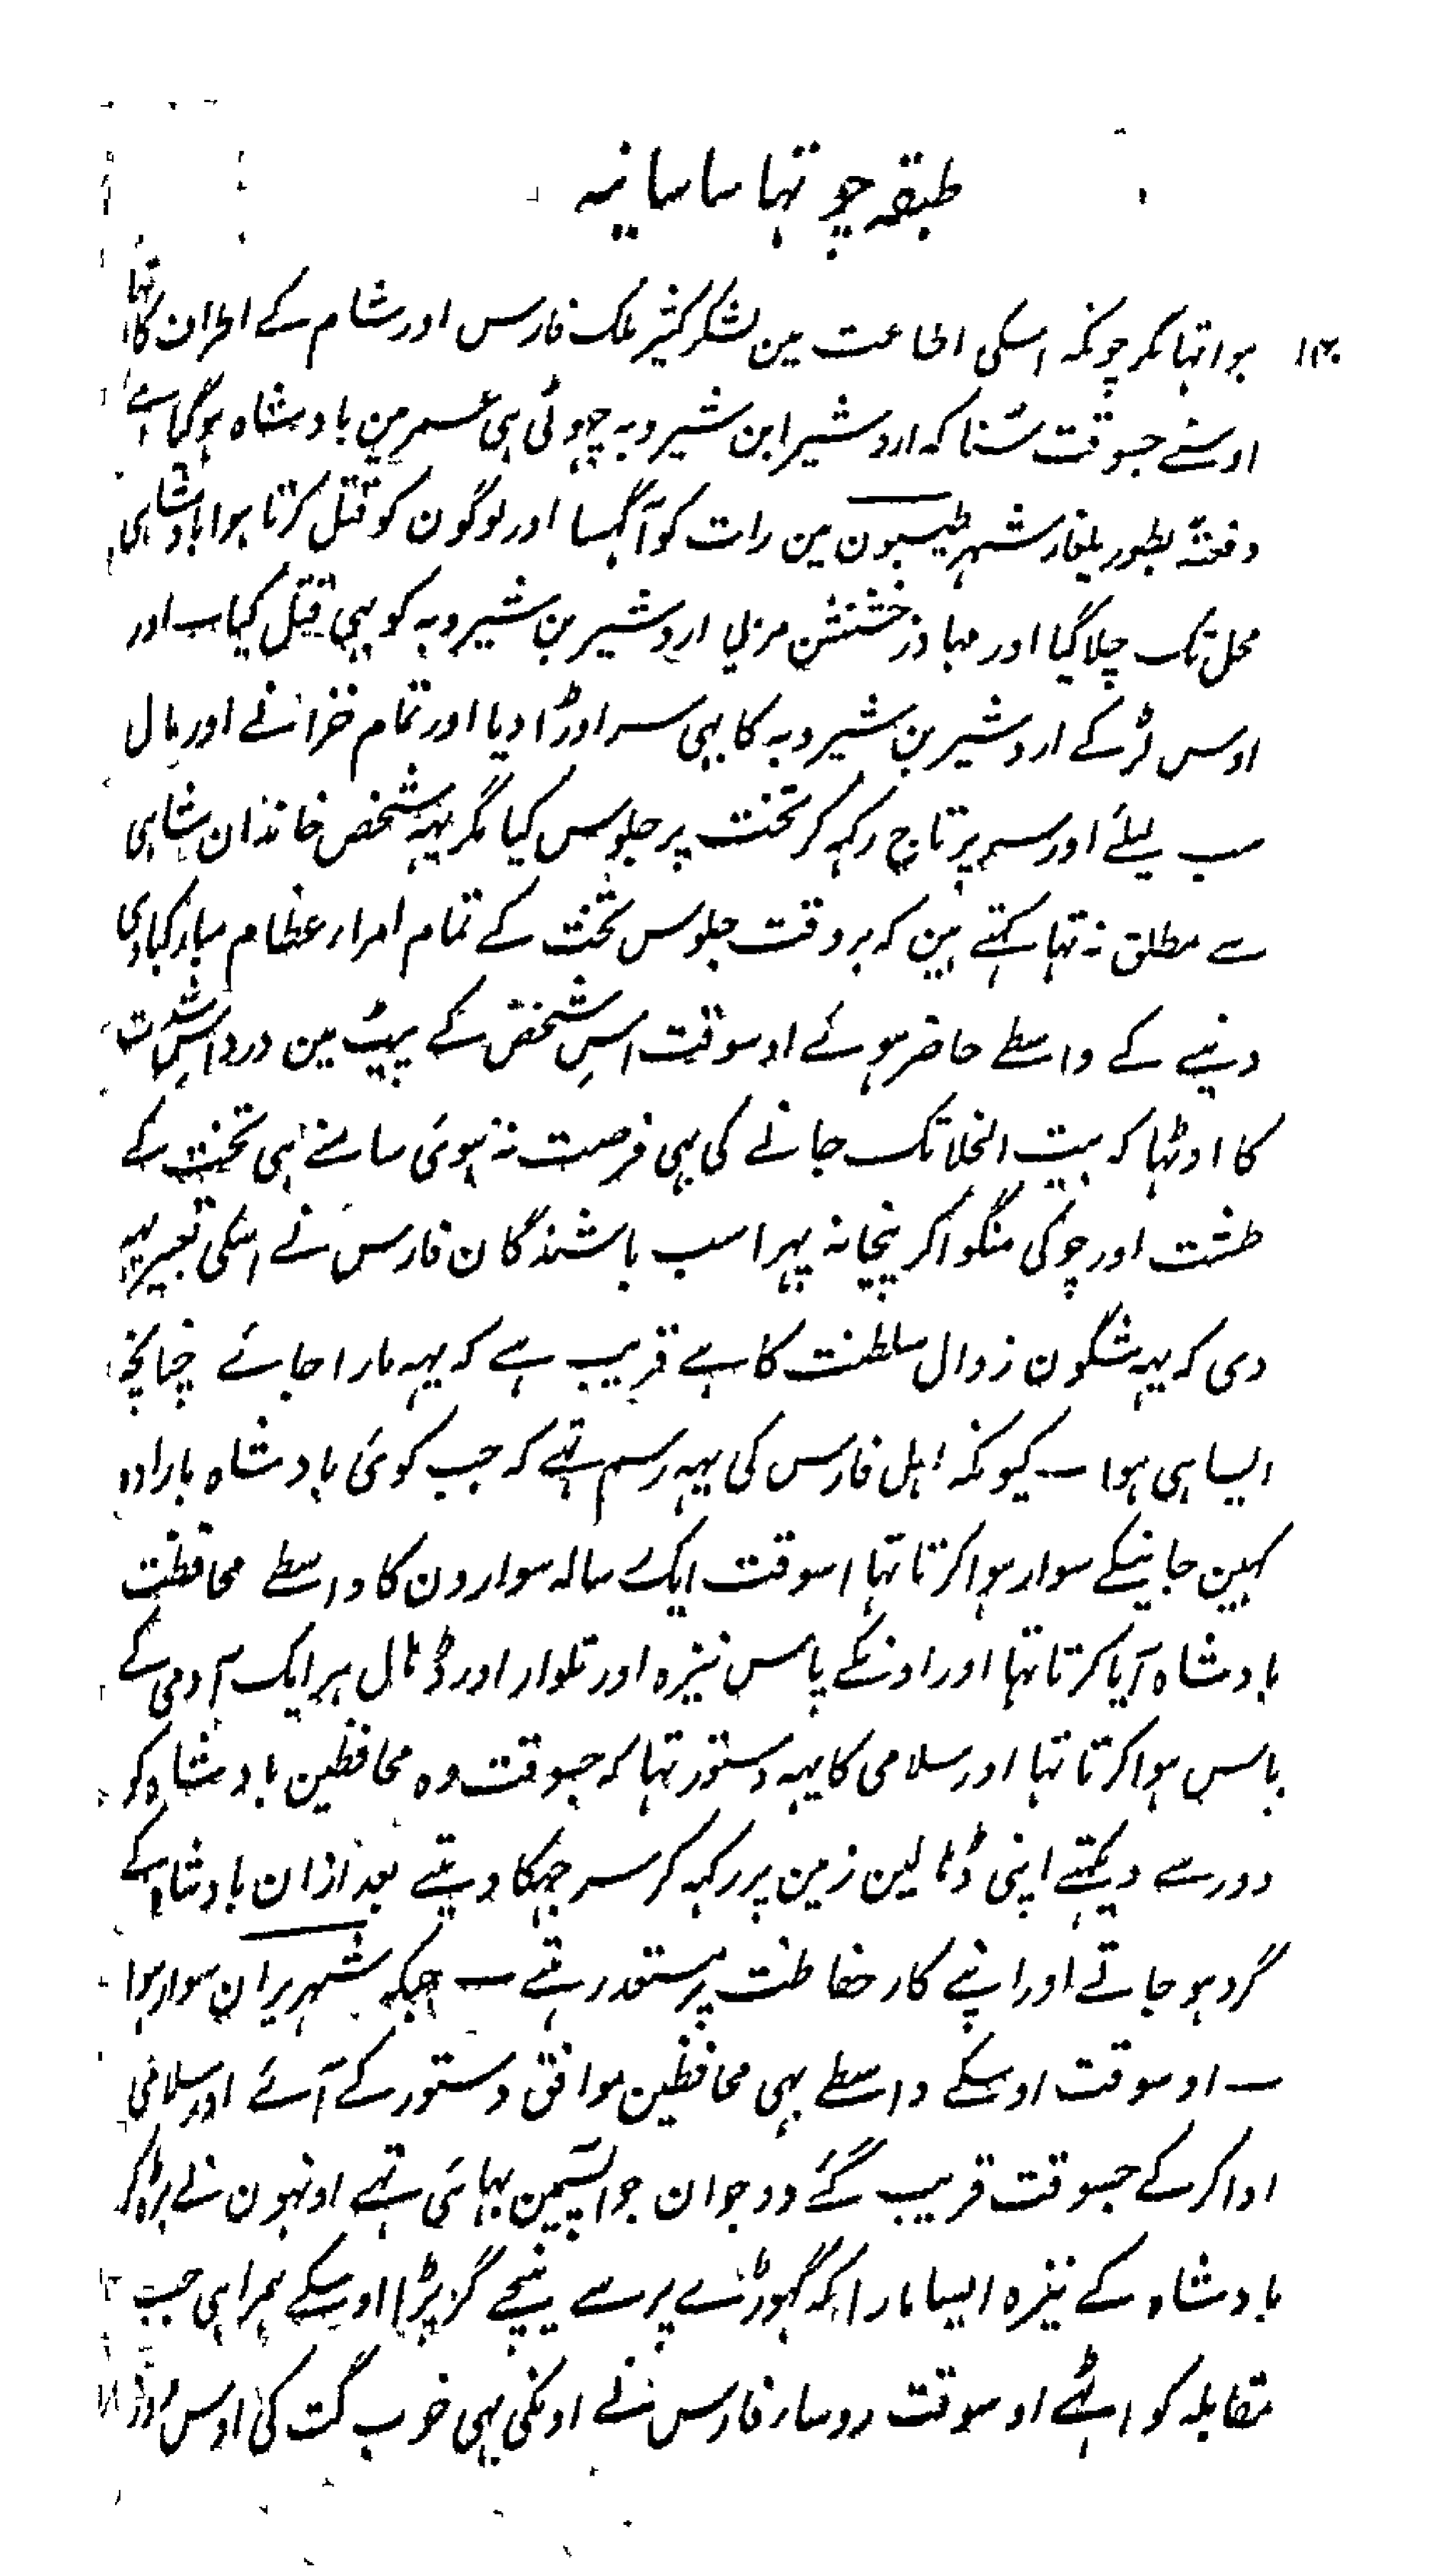 طبقہ چوتہا ساسانیہ
ہوا تہا مگر چونکہ اسکی اطاعت مین لشکر کثیر ملک فارس اور شام کے اطراف کا تہا
اوسنے جسوقت سُنا کہ اردشیر ابن شیرویہ چہوٹی ہی عمر مین بادشاہ ہوگیا ہے
دفعتہً بطور یلغار شہر طیسبون مین رات کو آگہسا اور لوگون کو قتل کرتا ہوا بادشاہی
محل تک چلا گیا اور مہاذرخشنش مربی اردشیر بن شیرویہ کو بہی قتل کیا ۔ اور
اوس لڑکے اردشیر بن شیرویہ کا بہی سر اوڑا دیا اور تمام خزانے اور مال
سب لیلئے اور سر پر تاج رکہہ کر تخت پر جلوس کیا مگر یہہ شخص خاندان شاہی
سے مطلق نہ تہا کہتے ہین کہ بروقت جلوس تخت کے تمام امراء عظام مبارکبادی
دینے کے واسطے حاضر ہوئے اوسوقت اس شخص کے پیٹ مین درد اس شدت
کا اوٹہا کہ بیت الخلا تک جانے کی بہی فرصت نہ ہوئی سامنے ہی تخت کے
طشت اور چوکی منگوا کر پیخانہ پہرا سب باشندگان فارس نے اسکی تعبیر یہہ
دی کہ یہہ شگون زوال سلطنت کا ہے قریب ہے کہ یہہ مارا جائے چنانچہ
ایسا ہی ہوا ۔ کیونکہ اہل فارس کی یہہ رسم تہے کہ جب کوئی بادشاہ بارادہ
کہین جانیکے سوار ہوا کرتا تہا اسوقت ایک رسالہ سوارون کا واسطے محافظت
بادشاہ آیا کرتا تہا اور اونکے پاس نیزہ اور تلوار اور ڈہال ہر ایک آدمی کے
پاس ہوا کرتا تہا اور سلامی کا یہہ دستور تہا کہ جسوقت وہ محافظین بادشاہ کو
دور سے دیکہتے اپنی ڈہالین زمین پر رکہہ کر سر جہکا دیتے بعد ازان بادشاہ کے
گرد ہو جاتے اور اپنے کار حفاظت پر مستعد رہتے ۔ جبکہ شہریران سوار ہوا
۔ اوسوقت اوسکے واسطے بہی محافظین موافق دستور کے آئے اور سلامی
ادا کرکے جسوقت قریب گئے دو جوان جو اپسمین بہائی تہے اونہون نے بڑہ کر
بادشاہ کے نیزہ ایسا مارا کہ گہوڑے پر سے نیچے گر پڑا اوسکے ہمراہی جب
مقابلہ کو اٹہے اوسوقت روساء فارس نے اونکی بہی خوب گت کی اوس روز